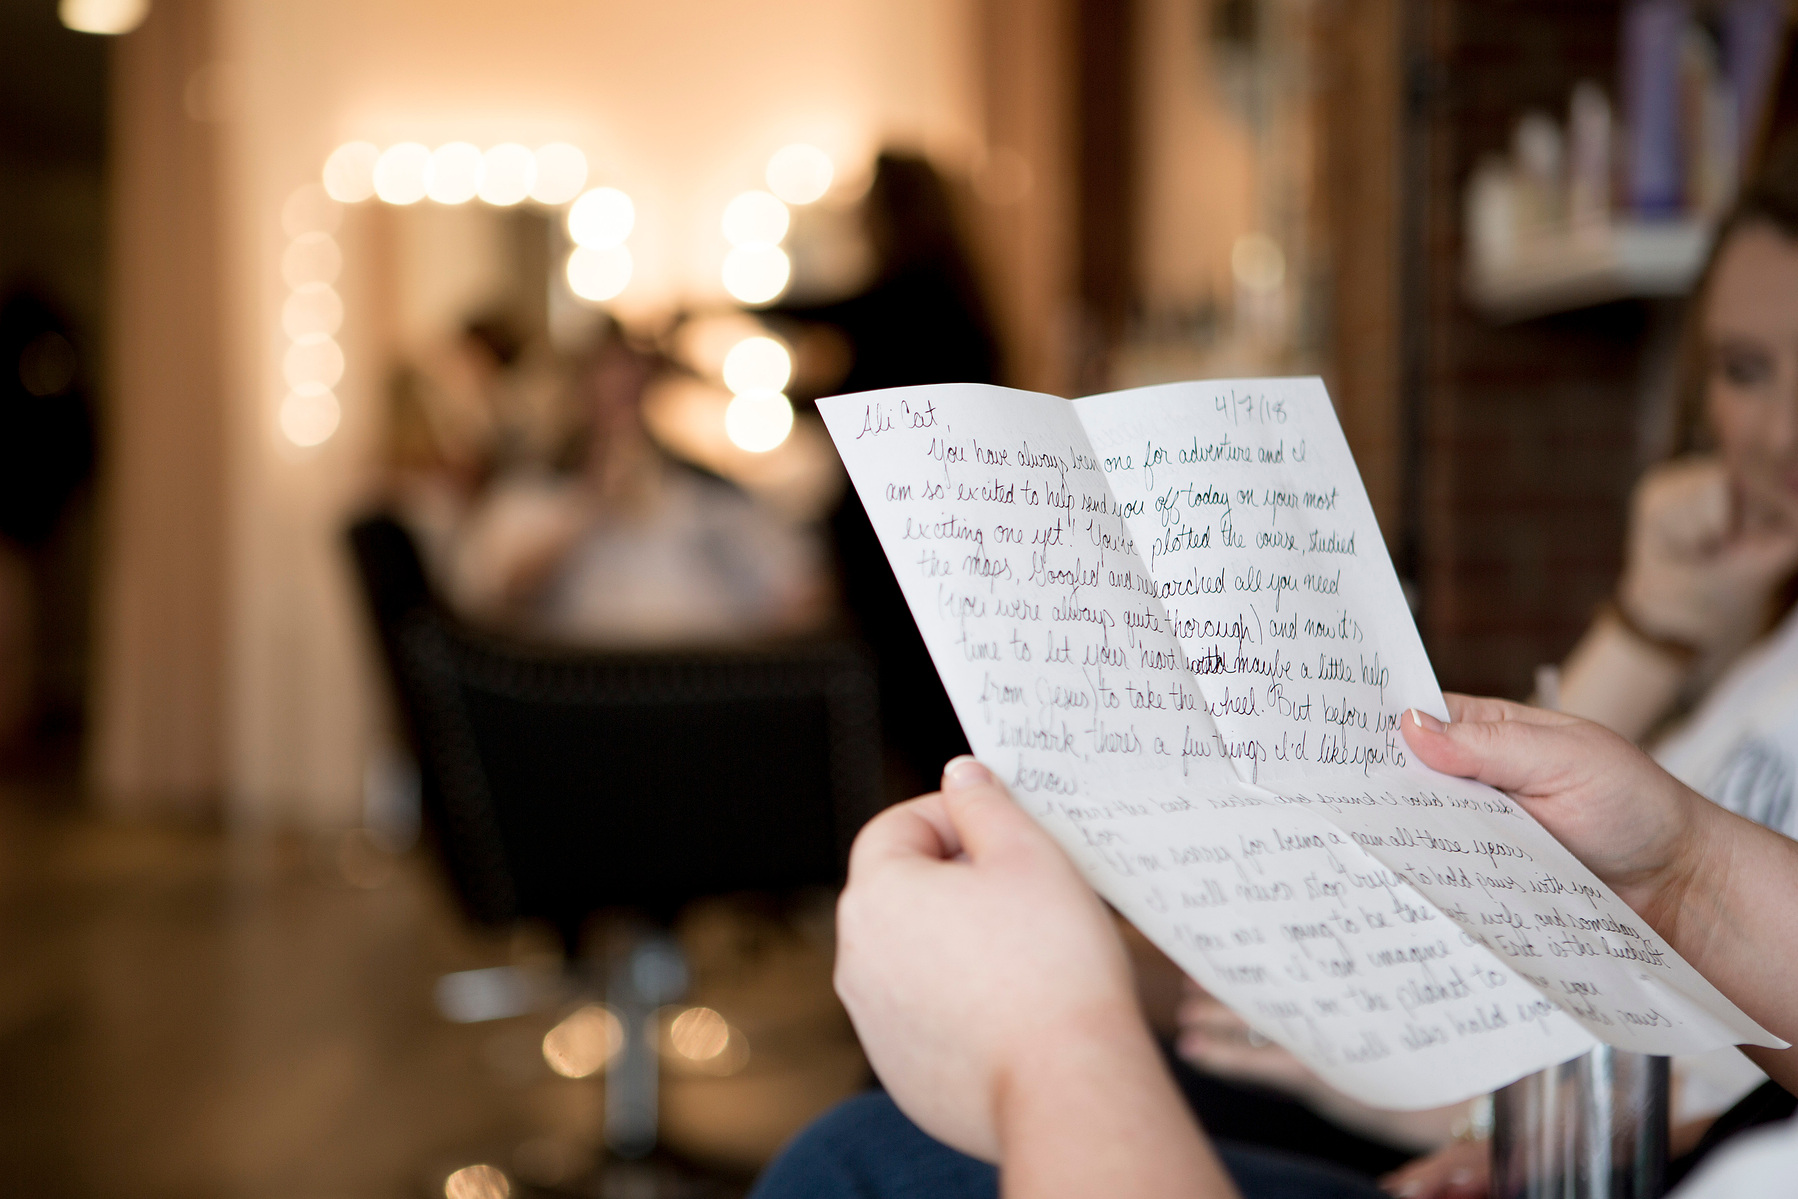 Ali Cat,
4/7/18
You have always been one for adventure and I
am so excited to help send you off today on your most
exciting one yet! You've plotted the course, studied
the maps, Googled and researched all you need
(you were always quite thorough) and now it's
time to let your heart maybe a little help
from Jesus) to take the wheel. But before you
embark, there's a few things I'd like you to
know:
You're the best sister and friend I could ever ask
for
I'm sorry for being a pain all these years.
I will never stop trying to hold paws with you
You are going to be the best wife, and someday
mom I can imagine is the luckiest
guy on the planet to have you
I will also hold your paws.